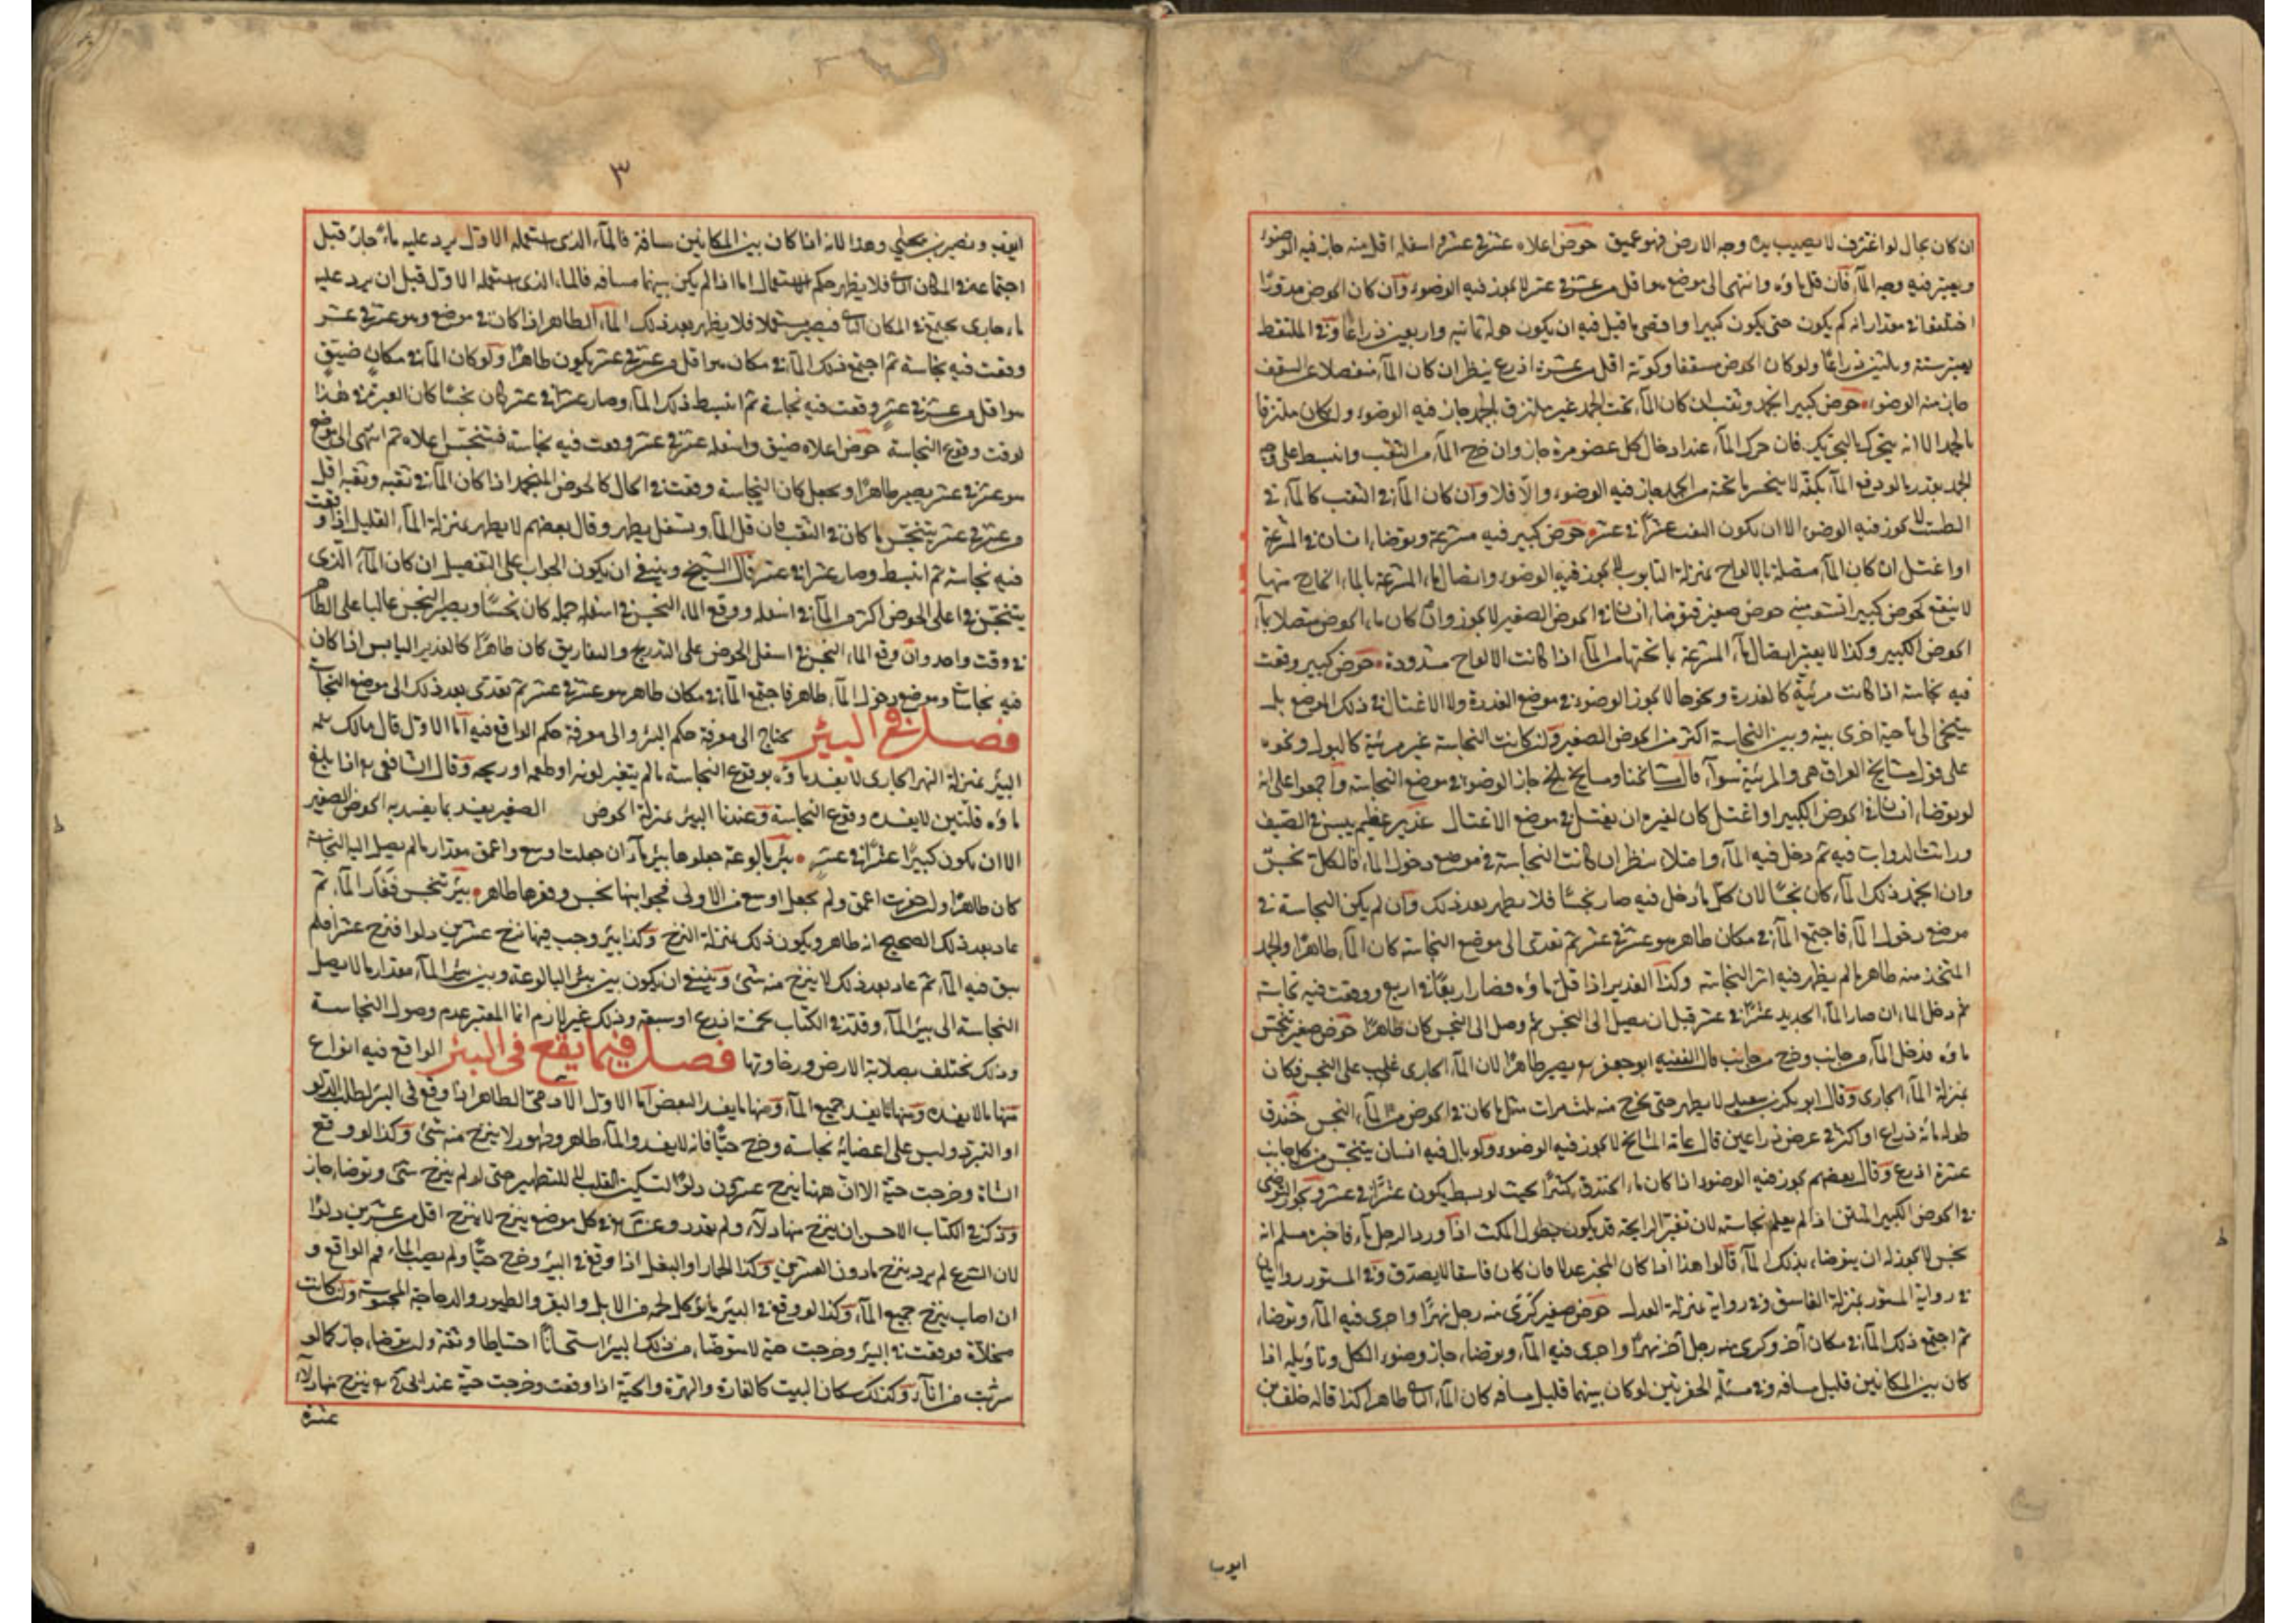 ان كان بحال لو اغترف لا يصيب يده وجه الارض فهو عميق حوض اعلاه عشر في عشر و اسفله اقل منه جاز فيه الوضوء
ويعتبر فيه وجه المآء فان قل ماؤه وانتهى الى موضع هو اقل من عشر في عشر لا يجوز فيه الوضوء وان كان الحوض مدورا
اختلفوا في مقداره انه كم يكون حتى يكون كبيرا واقصى ما قيل فيه ان يكون حوله ثمانية واربعين ذراعا وفي الملتقط
يعتبر ستة وثلثين ذراعا ولو كان الحوض مسقفا وكوته اقل من عشرة اذرع ينظر ان كان المآء منفصلا عن السقف
جاز منه الوضوء حوض كبير انجمد وثقب ان كان المآء تحت الجمد غير ملتزق بالجمد جاز فيه الوضوء وان كان ملتزقا
بالجمد الا انه يتحرك بالتحريك فان حرك المآء عند ادخال كل عضو مرة جاز وان خرج المآء من الثقب وانبسط على وجه
الجمد بقدر ما لو رفع المآء بكفه لا ينحسر ما تحته من الجمد جاز فيه الوضوء والا فلا وان كان المآء في الثقب كالمآء في
الطست لا يجوز فيه الوضوء الا ان يكون الثقب عشرا في عشر حوض كبير فيه مشرعة وتوضا انسان في المشرعة
او اغتسل ان كان المآء متصلا بالالواح بمنزلة التابوت لا يجوز فيه الوضوء واتصال ماء المشرعة بالماء الخارج منها
لا ينفع كحوض كبير انشعب منه حوض صغير فتوضا انسان في الحوض الصغير لا يجوز وان كان ماء الحوض متصلا بمآء
الحوض الكبير وكذا لا يعتبر اتصال مآء المشرعة بما تحتها من المآء اذا كانت الالواح مشدودة حوض كبير وقعت
فيه نجاسة اذا كانت مرئية كالعذرة ونحوها لا يجوز الوضوء في موضع العذرة ولا الاغتسال في ذلك الموضع بل
يتنحى الى ناحية اخرى بينه وبين النجاسة اكثر من الحوض الصغير وان كانت النجاسة غير مرئية كالبول ونحوه
على قول مشايخ العراق هي والمرئية سوآء قال مشايخنا ومشايخ بلخ جاز الوضوء في موضع النجاسة واجمعوا على انه
لو توضا انسان في الحوض الكبير او اغتسل كان لغيره ان يغتسل في موضع الاغتسال غدير عظيم يبس في الصيف
وراثت الدواب فيه ثم دخل فيه المآء وامتلا ينظر ان كانت النجاسة في موضع دخول المآء فالكل نجس
وان انجمد ذلك المآء كان نجسا لان كل ما دخل فيه صار نجسا فلا يطهر بعد ذلك وان لم يكن النجاسة في
موضع دخول المآء فاجتمع المآء في مكان طاهر هو عشر في عشر ثم تعدى الى موضع النجاسة كان المآء طاهرا والجمد
المتخذ منه طاهر ما لم يظهر فيه اثر النجاسة وكذا الغدير اذا قل ماؤه فصار اربعا في اربع ووقعت فيه نجاسة
ثم دخل الماء ان صار المآء الجديد عشرا في عشر قبل ان يصل الى النجس ثم وصل الى النجس كان طاهرا حوض صغير تنجس
ماؤه فدخل المآء من جانب وخرج من جانب قال الفقيه ابو جعفر يصير طاهرا لان المآء الجاري غلب على النجس فكان
بمنزلة المآء الجاري وقال ابو بكر بن سعيد لا يطهر حتى يخرج منه ثلث مرات مثل ما كان في الحوض من المآء النجس خندق
طوله مائة ذراع او اكثر في عرض ذراعين قال عامة المشايخ لا يجوز فيه الوضوء ولو بال فيه انسان يتنجس من كل جانب
عشرة اذرع وقال بعضهم يجوز فيه الوضوء اذا كان ماء الخندق كثيرا بحيث لو بسط يكون عشرا في عشر ويجوز التوضي
في الحوض الكبير المنتن اذا لم يعلم نجاسته لان تغير الرايحة قد يكون بطول المكث اذا ورد الرجل مآء فاخبره مسلم انه
نجس لا يجوز له ان يتوضا بذلك المآء قالوا هذا اذا كان المخبر عدلا فان كان فاسقا لا يصدق وفي المستور روايتان
في رواية المستور بمنزلة الفاسق وفي رواية بمنزلة العدل حوض صغير كرى منه رجل نهرا واجرى فيه المآء وتوضا
ثم اجتمع ذلك المآء في مكان آخر وكرى منه رجل آخر نهرا واجرى فيه المآء وتوضا جاز وضوء الكل وتاويله اذا
كان بين المكانين قليل مسافة وفي مسئلة الحفرتين لو كان بينهما قليل مسافة كان المآء الثاني طاهرا كذا قاله خلف بن
ايوب
٣
ايوب ونصير بن يحيى وهذا لانه اذا كان بين المكانين مسافة فالمآء الذي استعمله الاول يرد عليه ماء جار قبل
اجتماعه في المكان الثاني فلا يظهر حكم الاستعمال اما اذا لم يكن بينهما مسافة فالماء الذي استعمله الاول قبل ان يرد عليه
ماء جاري يجتمع في المكان الثاني فيصير مستعملا فلا يظهر بعد ذلك المآء الطاهر اذا كان في موضع وهو عشر في عشر
وقعت فيه نجاسة ثم اجتمع ذلك المآء في مكان هو اقل من عشر في عشر يكون طاهرا ولو كان المآء في مكان ضيق
هو اقل من عشر في عشر وقعت فيه نجاسة ثم انبسط ذلك المآء وصار عشرا في عشر كان نجسا كان العبرة في هذا
لوقت وقوع النجاسة حوض اعلاه ضيق واسفله عشر في عشر وقعت فيه نجاسة فتنجس اعلاه ثم انتهى الى موضع
هو عشر في عشر يصير طاهرا ويجعل كان النجاسة وقعت في الحال كالحوض المنجمد اذا كان المآء في ثقبه وثقبه اقل
من عشر في عشر يتنجس ما كان في الثقب فان قل المآء وتسفل يطهر وقال بعضهم لا يطهر بمنزلة المآء القليل اذا وقعت
فيه نجاسة ثم انبسط وصار عشرا في عشر قال الشيخ وينبغي ان يكون الجواب على التفصيل ان كان المآء الذي
يتنجس في اعلى الحوض اكثر من المآء في اسفله ووقع الماء النجس في اسفله جملة كان نجسا ويصير النجس غالبا على الطاهر
في وقت واحد وان وقع الماء النجس في اسفل الحوض على التدريج والتفاريق كان طاهرا كالغدير اليابس اذا كان
فيه نجاسات وموضع دخول المآء طاهر فاجتمع المآء في مكان طاهر هو عشر في عشر ثم تعدى بعد ذلك الى موضع النجاسة
فصل في البئر يحتاج الى معرفة حكم البئر والى معرفة حكم الواقع فيه اما الاول قال مالك
البئر بمنزلة النهر الجاري لا يفسد ماؤه بوقوع النجاسة ما لم يتغير لونه او طعمه او ريحه وقال الشافعي اذا بلغ
ماؤه قلتين لا يفسده وقوع النجاسة وعندنا البئر بمنزلة الحوض الصغير يفسد بما يفسد به الحوض الصغير
الا ان يكون كبيرا عشرا في عشر بئر بالوعة جعلوها بئر مآء ان جعلت اوسع واعمق مقدار ما لم يصل اليه النجاسة
كان طاهرا وان حفرت اعمق ولم يجعل اوسع من الاولى فجوانبها نجس وقعرها طاهر بئر تنجس فغار المآء ثم
عاد بعد ذلك الصحيح انه طاهر ويكون ذلك بمنزلة النزح وكذا بئر وجب فيها نزح عشرين دلوا فنزح عشرا فلم
يبق فيه المآء ثم عاد بعد ذلك لا ينزح منه شئ وينبغي ان يكون بين بئر البالوعة وبين بئر المآء مقدار ما لا يصل
النجاسة الى بئر المآء وقدّر في الكتاب بخمسة اذرع او سبعة وذلك غير لازم انما المعتبر عدم وصول النجاسة
وذلك يختلف بصلابة الارض ورخاوتها فصل فيما يقع في البئر الواقع فيه انواع
منها ما لا يفسده ومنها ما يفسد جميع المآء ومنها ما يفسد البعض اما الاول الآدمي الطاهر اذا وقع في البئر لطلب الدلو
او التبرد وليس على اعضائه نجاسة وخرج حيا فانه لا يفسد والمآء طاهر وطهور لا ينزح منه شئ وكذا لو وقع
الشاة وخرجت حية الا ان ههنا ينزح عشرون دلوا لتسكين القلب لا للتطهير حتى لو لم ينزح شئ وتوضا جاز
وذكر في الكتاب الاحسن ان ينزح منها دلآء ولم يقدر وعن محمد في كل موضع ينزح لا ينزح اقل من عشرين دلوا
لان الشرع لم يرد بنزح ما دون العشرين وكذا الحمار او البغل اذا وقع في البئر وخرج حيا ولم يصب المآء فم الواقع و
ان اصاب ينزح جميع المآء وكذا لو وقع في البئر ما يؤكل لحمه من الابل والبقر والطيور والدجاجة المحبوسة وان كانت
مخلاة فوقعت في البئر وخرجت حية لا يتوضا من ذلك البئر استحسانا احتياطا وثقة وان توضا جاز كما لو
شربت من انآء وكذلك سكان البيت كالفارة والهرة والحية اذا وقعت وخرجت حية عند ابي ينزح منها دلآء
عشرة